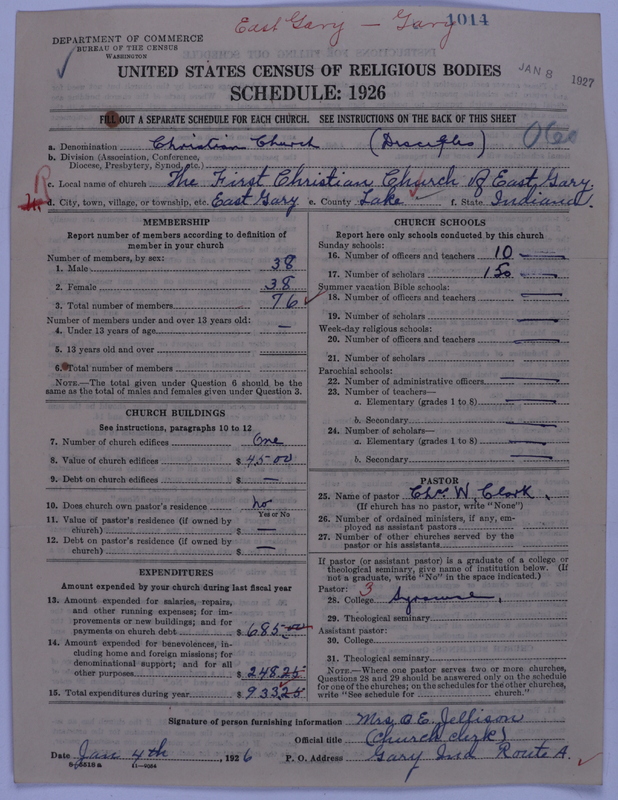 East Gary — Gary
1014
DEPARTMENT OF COMMERCE
BUREAU OF THE CENSUS
WASHINGTON
JAN 8 1927
UNITED STATES CENSUS OF RELIGIOUS BODIES
SCHEDULE: 1926
FILL OUT A SEPARATE SCHEDULE FOR EACH CHURCH. SEE INSTRUCTIONS ON THE BACK OF THIS SHEET
a. Denomination Christian Church (Disciples) 060
b. Division (Association, Conference,
Diocese, Presbytery, Synod, etc.)
c. Local name of church The First Christian Church of East Gary.
R
d. City, town, village, or township, etc. East Gary e. County Lake f. State Indiana.
MEMBERSHIP
Report number of members according to definition of
member in your church
Number of members, by sex:
1. Male 38
2. Female 38
3. Total number of members 76
Number of members under and over 13 years old:
4. Under 13 years of age —
5. 13 years old and over
6. Total number of members
NOTE.—The total given under Question 6 should be
same as the total of males and females given under Question 3.
CHURCH BUILDINGS
See instructions, paragraphs 10 to 12
7. Number of church edifices One
8. Value of church edifices $ 4500
9. Debt on church edifices $ —
10. Does church own pastor's residence? No
Yes or No
11. Value of pastor's residence (if owned by
church) $ —
12. Debt on pastor's residence (if owned by
church) $ —
EXPENDITURES
Amount expended by your church during last fiscal year
13. Amount expended for salaries, repairs,
and other running expenses; for im-
provements or new buildings; and for
payments on church debt $ 685.00
14. Amount expended for benevolences, in-
cluding home and foreign missions; for
denominational support; and for all
other purposes $ 248.25
15. Total expenditures during year $ 933.25
CHURCH SCHOOLS
Report here only schools conducted by this church
Sunday schools:
16. Number of officers and teachers 10 —
17. Number of scholars 150 —
Summer vacation Bible schools:
18. Number of officers and teachers —
19. Number of scholars —
Week-day religious schools:
20. Number of officers and teachers —
21. Number of scholars —
Parochial schools:
22. Number of administrative officers —
23. Number of teachers—
a. Elementary (grades 1 to 8) —
b. Secondary —
24. Number of scholars—
a. Elementary (grades 1 to 8) —
b. Secondary —
PASTOR
25. Name of pastor Chs. W. Clark.
(If church has no pastor, write "None")
26. Number of ordained ministers, if any, em-
ployed as assistant pastors
27. Number of other churches served by the
pastor or his assistants
If pastor (or assistant pastor) is a graduate of a college or
theological seminary, give name of institution below. (If
not a graduate, write "No" in the space indicated.)
Pastor: 3
28. College Syracuse.
29. Theological seminary
Assistant pastor:
30. College
31. Theological seminary
NOTE.—Where one pastor serves two or more churches,
Questions 28 and 29 should be answered only on the schedule
for one of the churches; on the schedules for the other churches,
write "See schedule for church."
Signature of person furnishing information Mrs. O. E. Jellison
Official title (Church clerk)
Date Jan 4th, 1926 P. O. Address Gary Ind Route A.
8-5518 a 11-9054